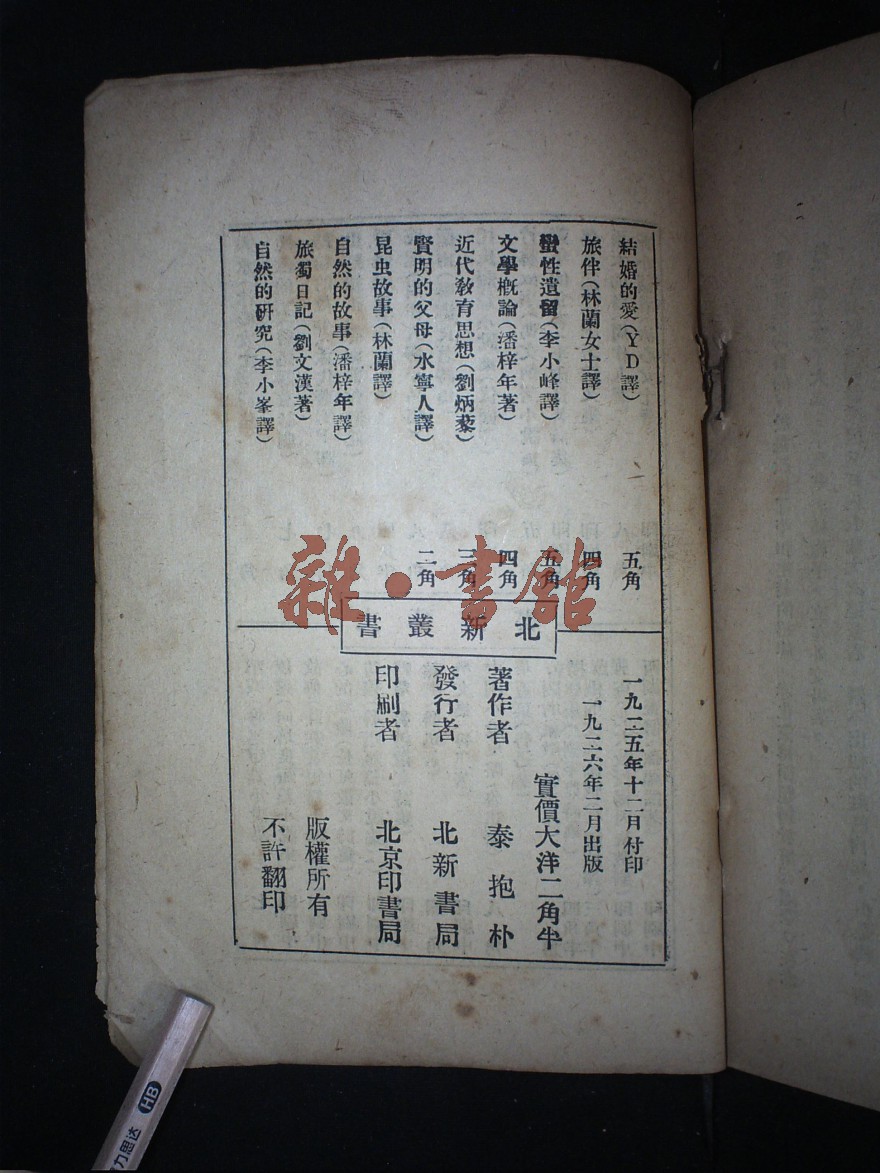 結婚的愛(YD譯) 五角
旅伴(林蘭女士譯) 四角
蠻性遺留(李小峰譯) 五角
文學概論(潘梓年著) 四角
近代教育思想(劉炳藜) 三角
賢明的父母(水寧人譯) 二角
昆虫故事(林蘭譯)
自然的故事(潘梓年譯)
旅蜀日記(劉文漢著)
自然的研究(李小峯譯)
雜·書館
北新叢書
一九二五年十二月付印
一九二六年二月出版
實價大洋二角半
著作者 泰抱朴
發行者 北新書局
印刷者 北京印書局
版權所有
不許翻印
力思达 HB